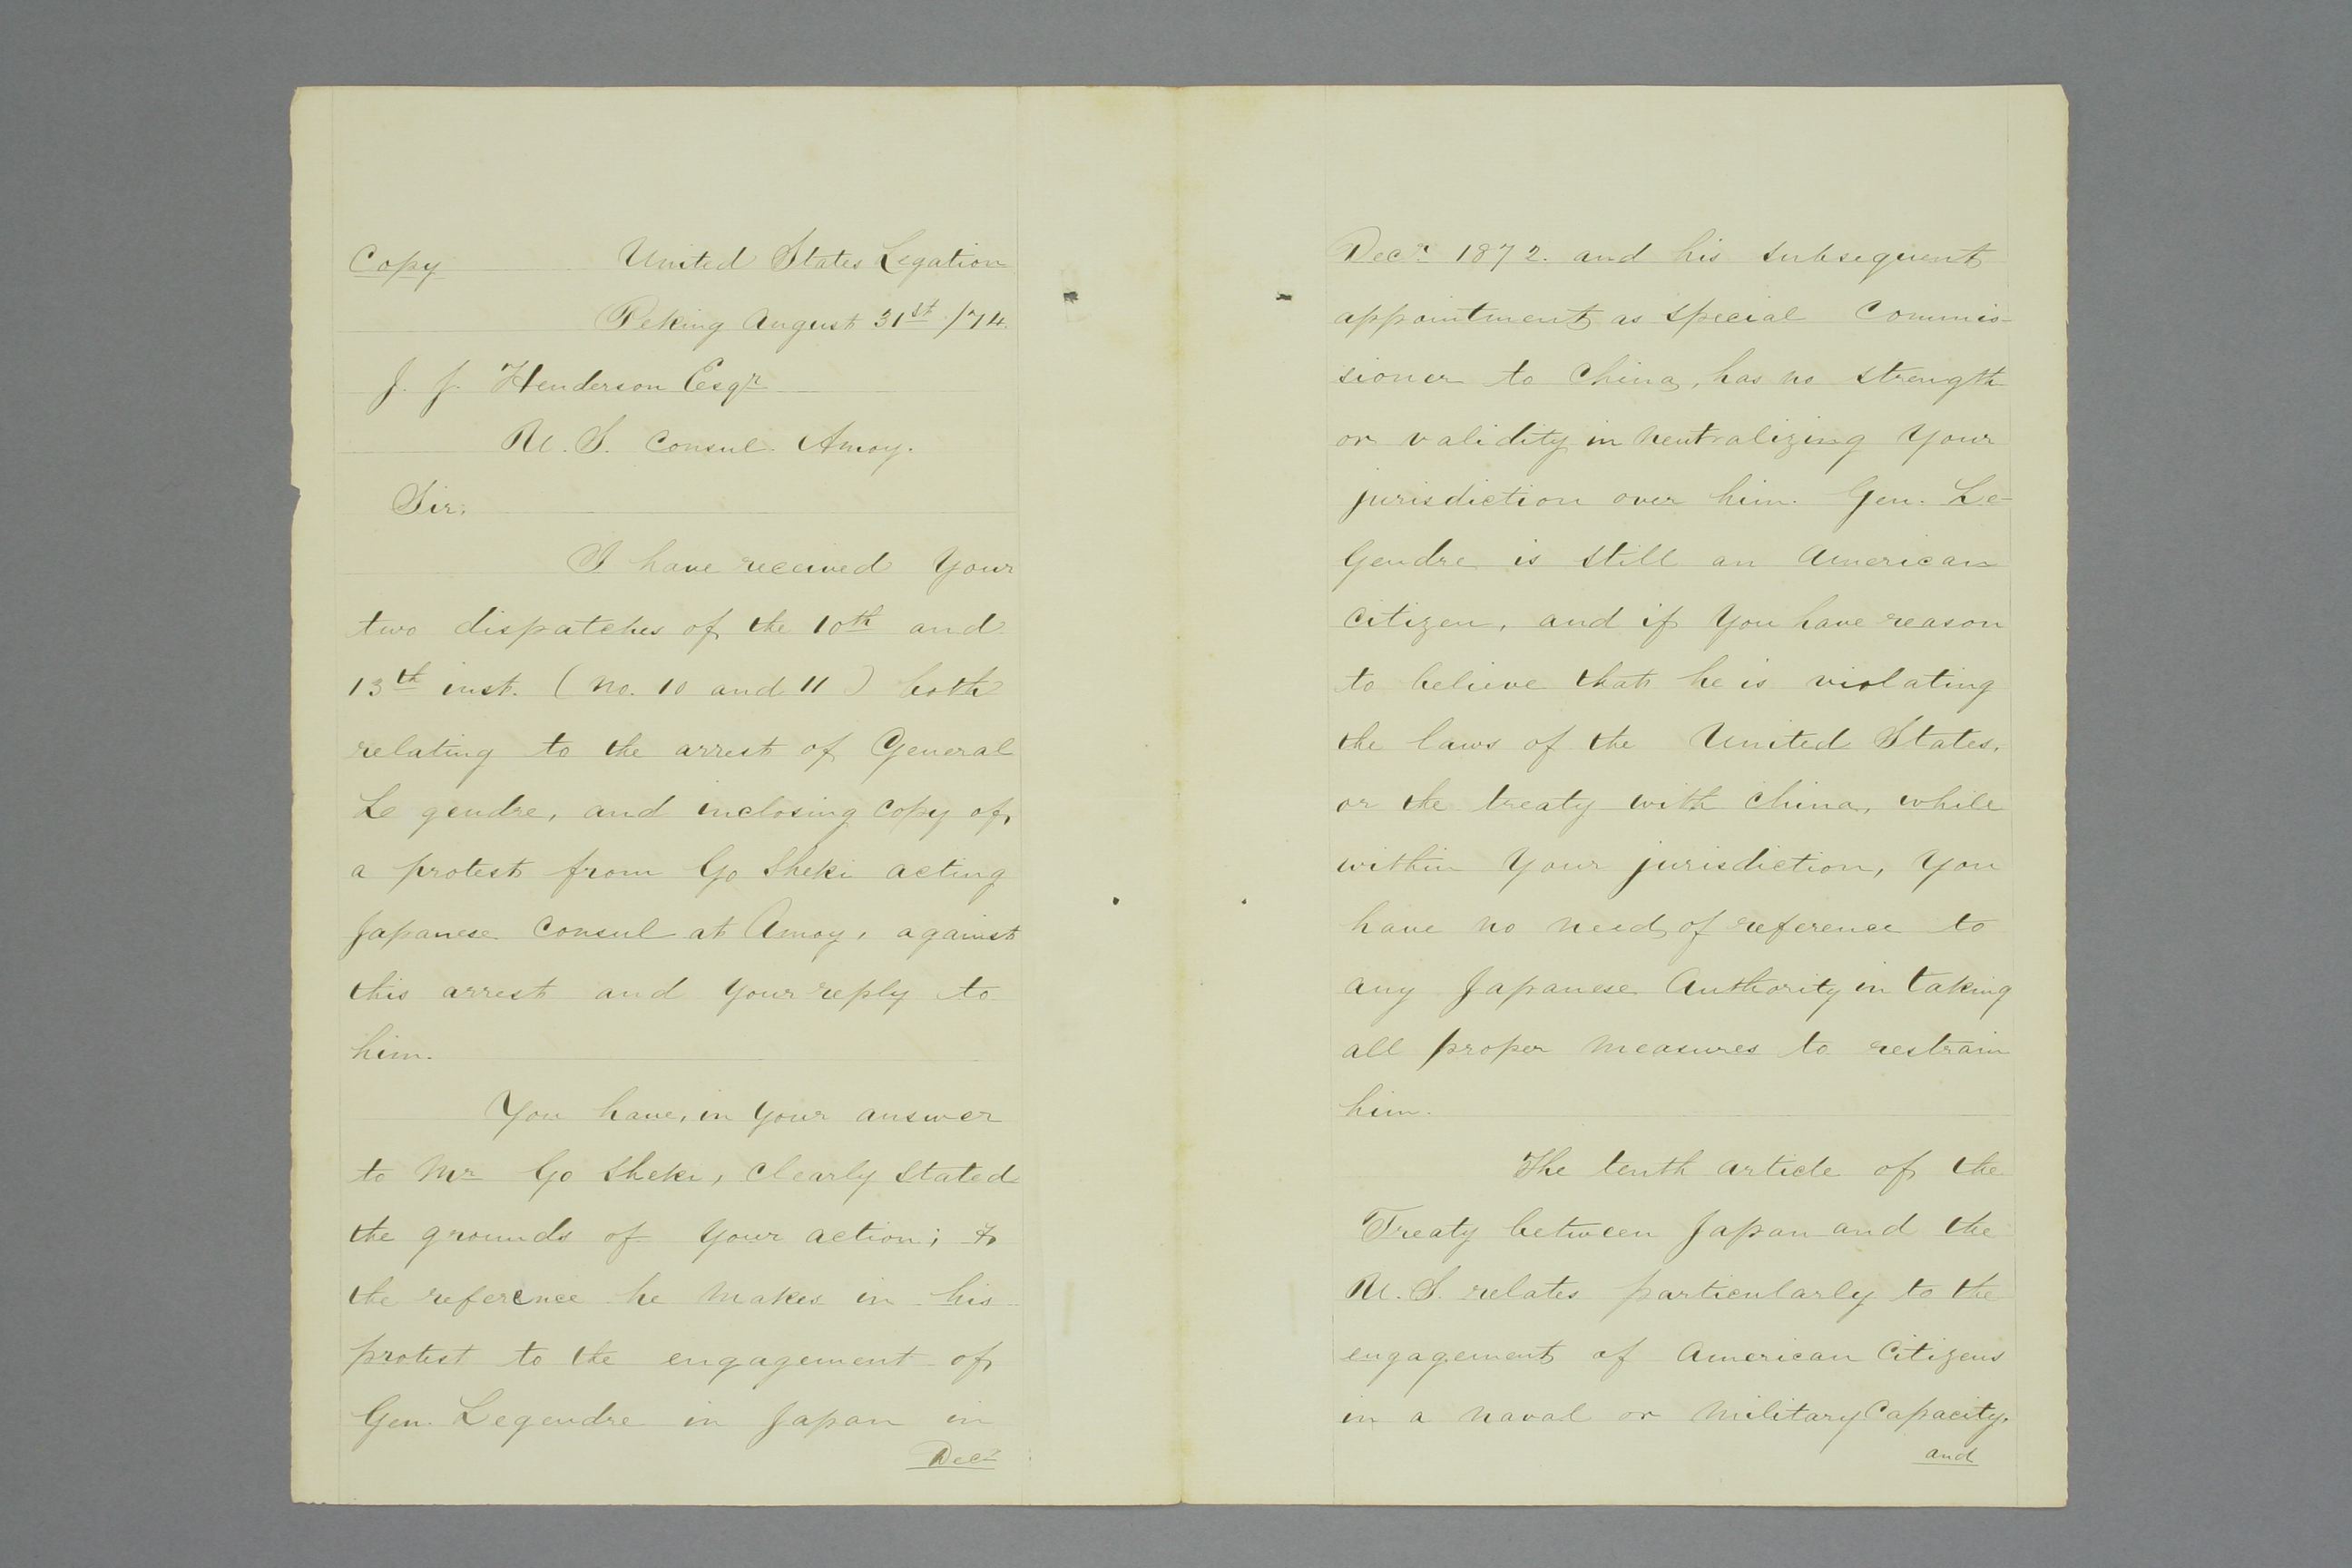 Copy United States Legation
Peking August 31st /74.
J. J. Henderson Esqr
U. S. Consul. Amoy.
Sir,
I have received Your
two dispatches of the 10th and
13th inst. (No. 10 and 11) both
relating to the arrest of General
Le gendre, and inclosing Copy of
a protest from Go Sheki acting
Japanese Consul at Amoy, against
this arrest and your reply to
him.
You have, in your answer
to Mr Go Sheki, Clearly Stated
the grounds of your action; &
the reference he makes in his
protest to the engagement of
Gen. Legendre in Japan in
Decr
Decr 1872. and his subsequent
appointment as Special Commis-
sioner to China, has no strength
or validity in neutralizing Your
jurisdiction over him. Gen. Le-
Gendre is still an American
Citizen, and if you have reason
to believe that he is violating
the laws of the United States,
or the treaty with China, while
within Your jurisdiction, You
have no need of reference to
any Japanese Authority in taking
all proper measures to restrain
him.
The tenth article of the
Treaty between Japan and the
U. S. relates particularly to the
engagement of American Citizens
in a naval or Military Capacity.
and